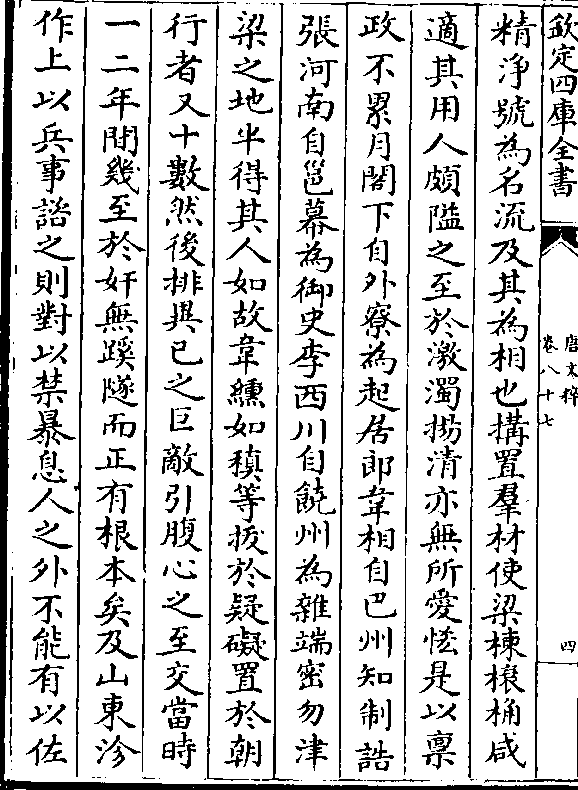 欽定四庫全書
唐文粹
卷八十七
四
精淨號為名流及其為相也搆置羣材使梁棟榱桷咸
適其用人頗隘之至於激濁揚清亦無所愛恡是以稟
政不累月閤下自外寮為起居郎韋相自巴州知制誥
張河南自邕幕為御史李西川自饒州為雜端密勿津
梁之地半得其人如故韋纁如稹等拔於疑礙置於朝
行者又十數然後排異己之巨敵引腹心之至交當時
一二年間幾至於奸無蹊隧而正有根本矣及山東沴
作上以兵事詒之則對以禁暴息人之外不能有以佐